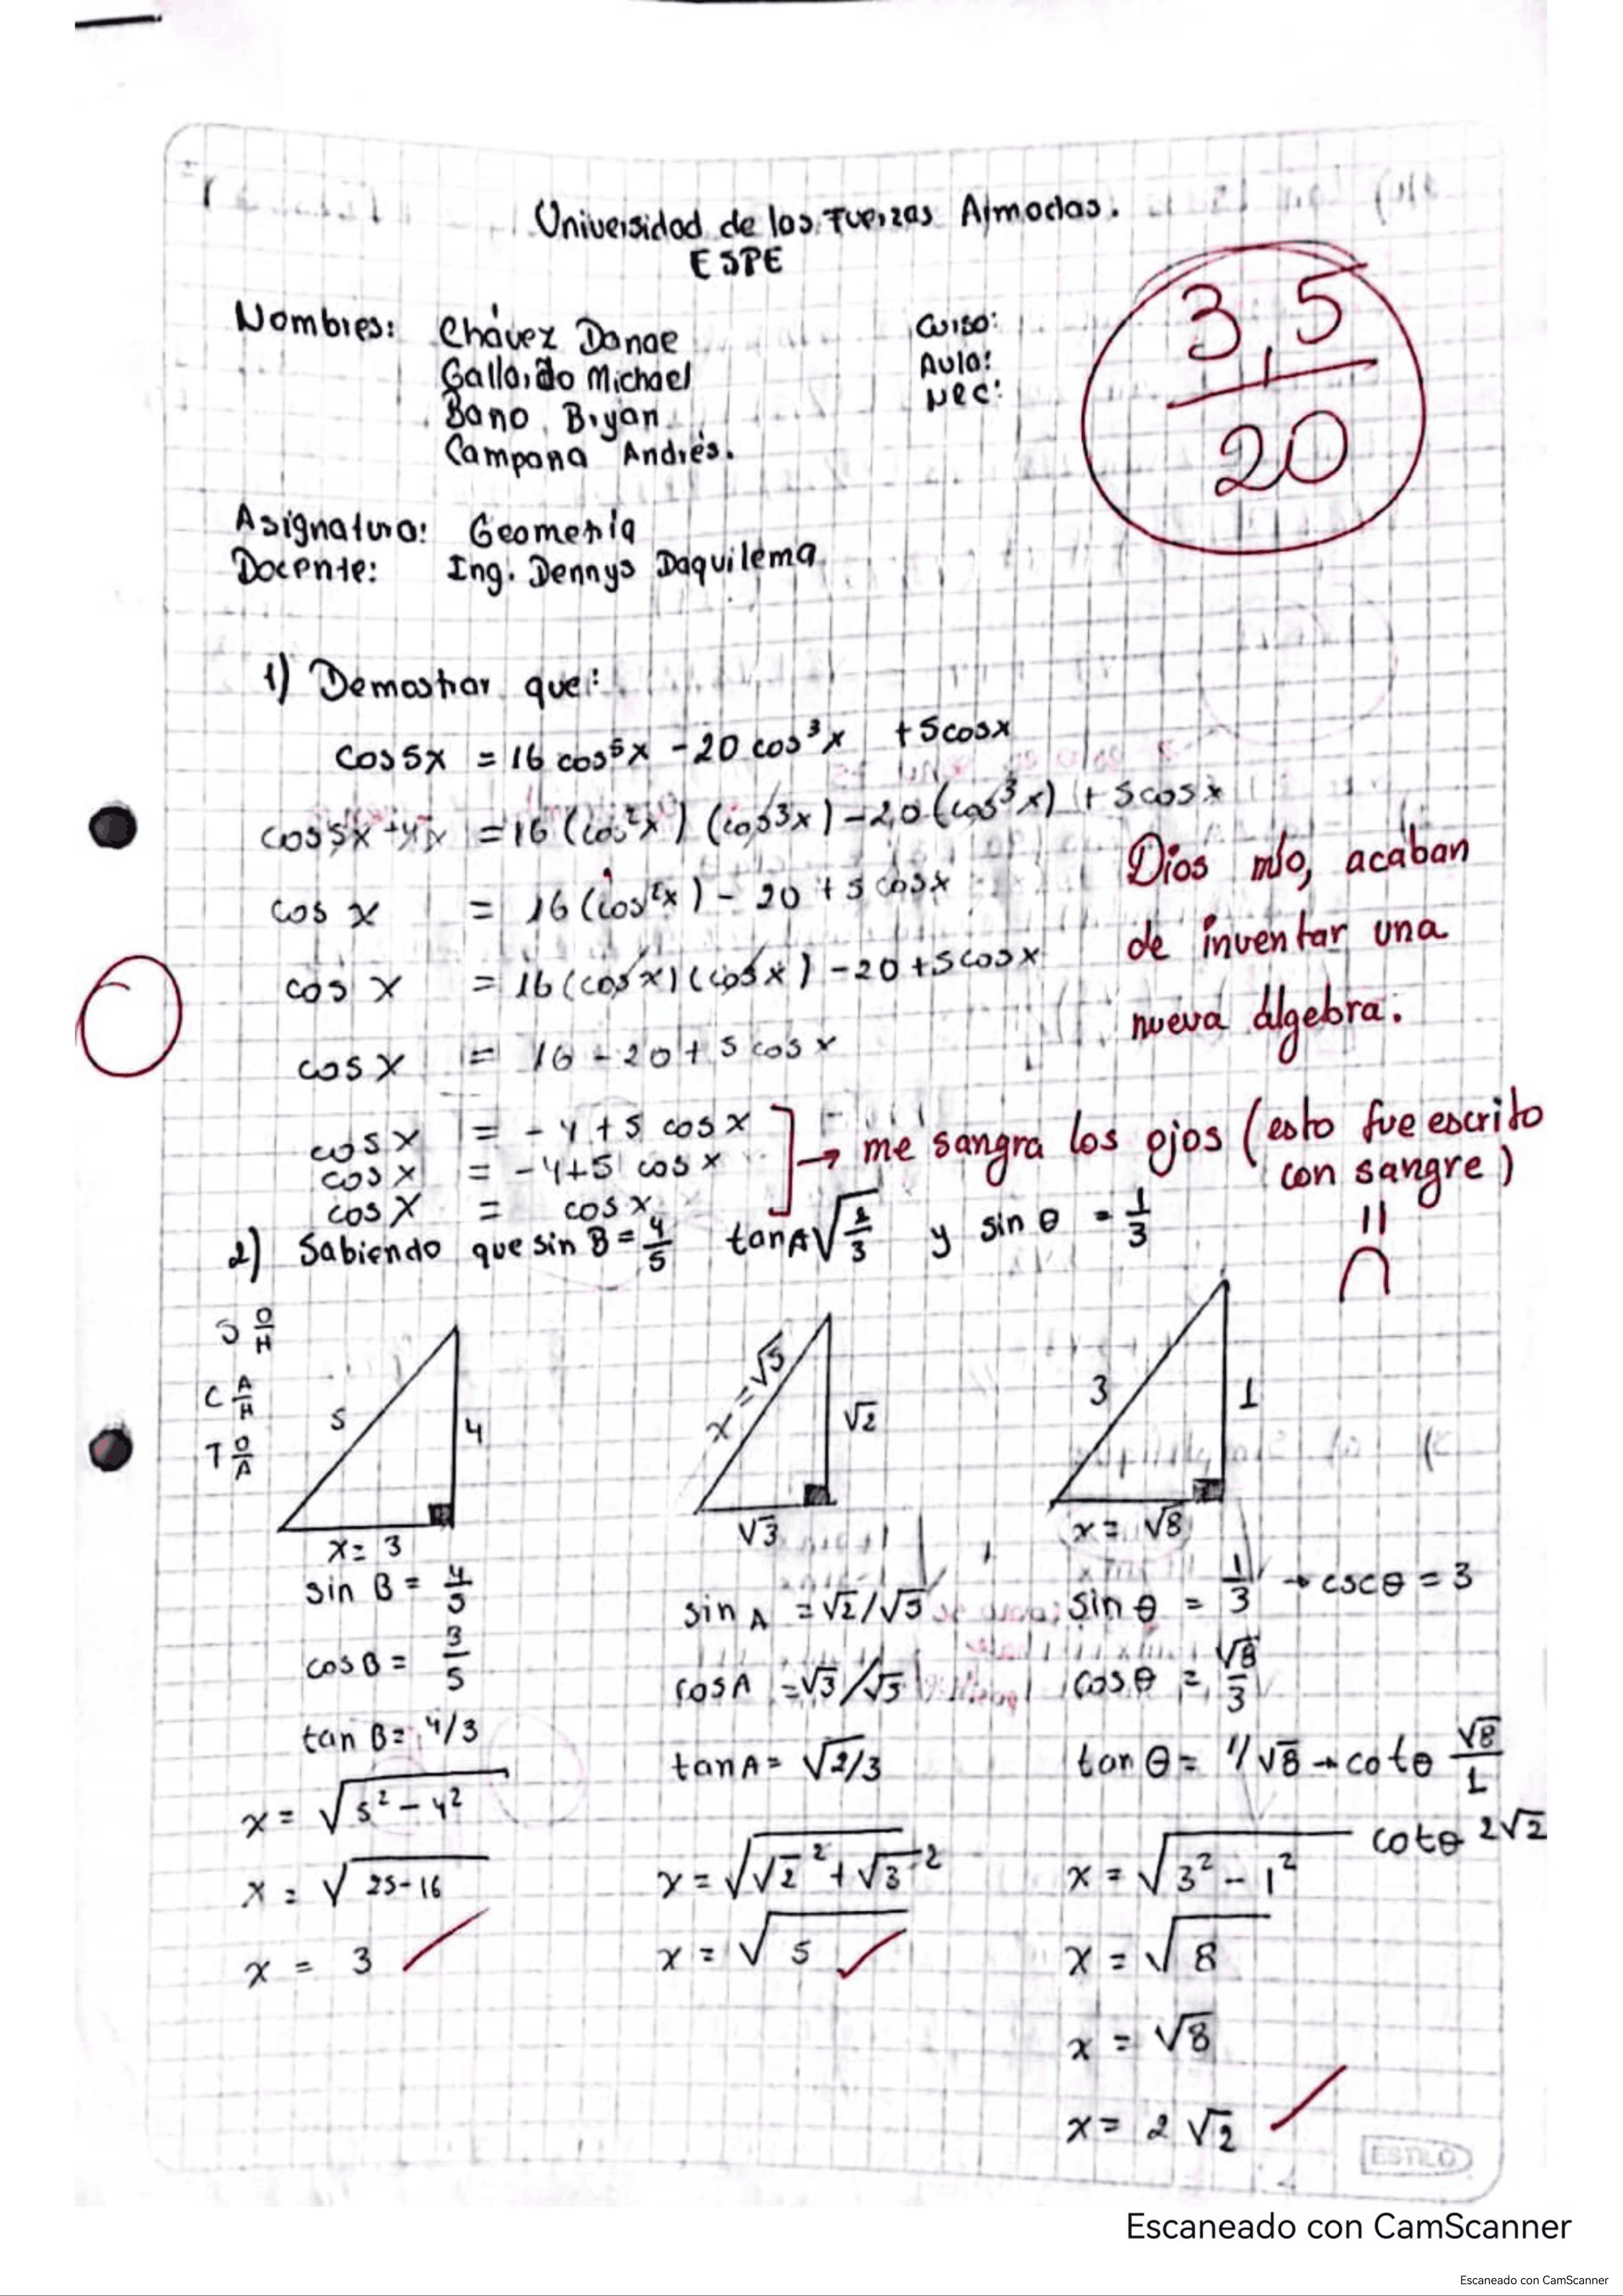 Universidad de las Fuerzas Armadas.
ESPE
Nombres: Chávez Danae
Gallardo Michael
Bano Bryan
Campana Andrés.
Curso:
Aula:
NRC:
3,5
20
Asignatura: Geometría
Docente: Ing. Dennys Daquilema
1) Demostrar que:
cos5x = 16 cos⁵x - 20 cos³x + 5cosx
= 16 (cos²x) (cos³x) - 20 (cos³x) + 5cosx
cos x = 16 (cos²x) - 20 + 5 cosx
cos x = 16 (cosx) (cosx) - 20 + 5cosx
cos x = 16 - 20 + 5 cosx
cos x = - 4 + 5 cosx
cos x = - 4+5 cosx
cos x = cosx
Dios mío, acaban
de inventar una
nueva álgebra.
→ me sangra los ojos (esto fue escrito
con sangre)
2) Sabiendo que sin B = 4/5 tanA √2/3 y sin θ = 1/3
S O/H
C A/H
T O/A
5
4
x = 3
x = √5
√2
√3
3
1
x = √8
sin B = 4/5
cosB = 3/5
tan B = 4/3
x = √5² - 4²
x = √25-16
x = 3
sin A = √2/√5
cosA = √3/√5
tanA = √2/3
x = √√2² + √3²
x = √5
sin θ = 1/3 → cscθ = 3
cosθ = √8/3
tan θ = 1/√8 → cotθ √8/1
cotθ 2√2
x = √3² - 1²
x = √8
x = √8
x = 2 √2
ESTILO
Escaneado con CamScanner
Escaneado con CamScanner